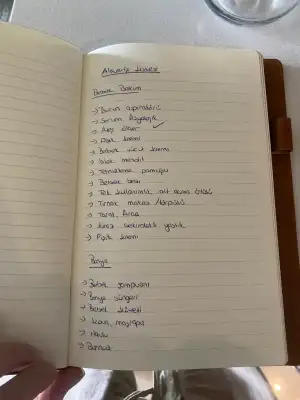 Alışveriş Listesi
Bebek Bakım
→ Burun aspiratörü
→ Serum fizyolojik ✓
→ Ateş ölçer
→ Pişik kremi
→ Bebek vücut kremi
→ Islak mendil
→ Temizleme pamuğu
→ Bebek bezi
→ Tek kullanımlık alt açma örtüsü
→ Tırnak makası / törpüsü
→ Tarak, fırça
→ şeklindeki yastık
→ Pişik kremi
Banyo
→ Bebek şampuanı
→ Banyo süngeri
→ Bebek küveti
→ Kova, maşrapa
→ Havlu
→ Bornoz